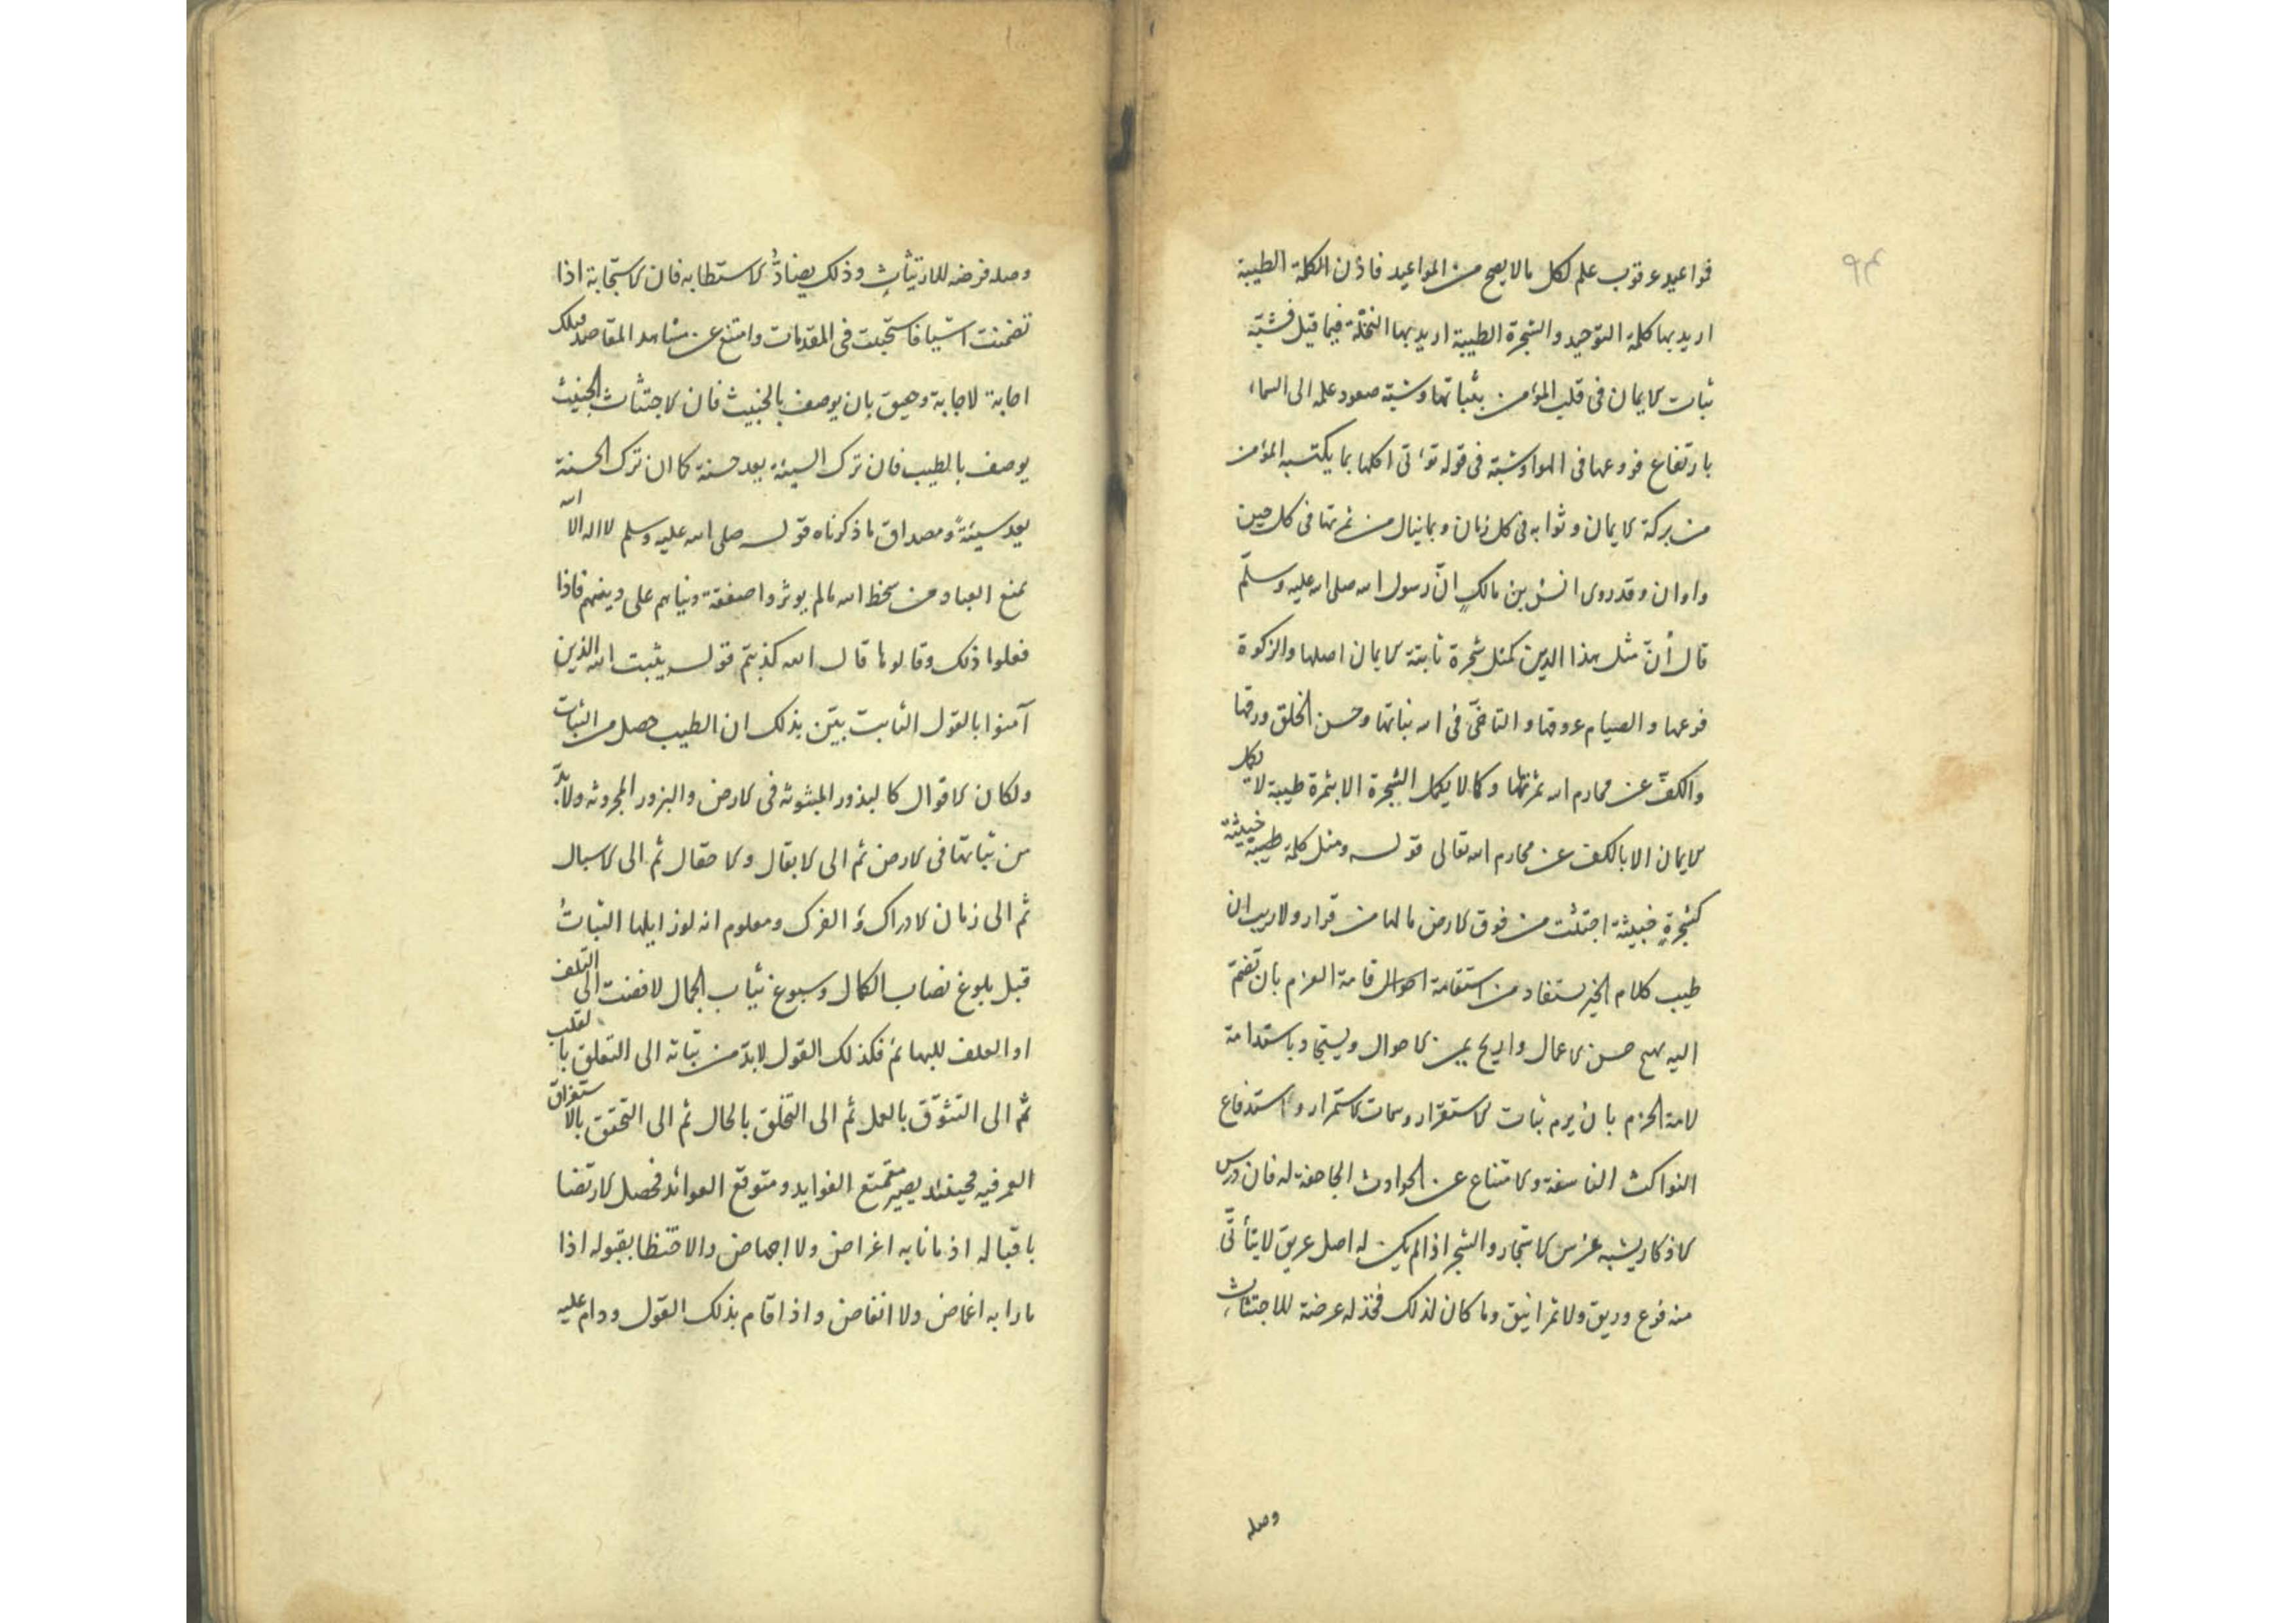 ٩٤
فواعيد عرقوب علم لكل مالا يصح من المواعيد فاذن الكلمة الطيبة
اريد بها كلمة التوحيد والشجرة الطيبة اريد بها النخلة فيما قيل فشبّه
ثبات الايمان فى قلب المؤمن بثباتها وشبّه صعود عمله الى السماء
بارتفاع فروعها فى الهوا وشبّه فى قوله تؤتى اكلها بما يكتسبه المؤمن
من بركة الايمان وثوابه فى كل زمان وبما ينال من ثمرتها فى كل حين
واوان وقد روى انس بن مالكٍ انّ رسول الله صلى الله عليه وسلّم
قال أنّ مثل هذا الدين كمثل شجرة ثابتة الايمان اصلها والزكوة
فرعها والصيام عروقها والتاخّى فى الله نباتها وحسن الخلق ورقها
والكفّ عن محارم الله ثمرتها وكما لا يكمل الشجرة الا بثمرة طيبة لا يكمل
الايمان الا بالكف عن محارم الله تعالى قوله ومثل كلمة خبيثة
كشجرةٍ خبيثة اجتثت من فوق الارض مالها من قرار ولا ريب ان
طيب كلام الخير يستفاد من استقامة احوال قامة العزم بان تضمّ
اليه حسن الاعمال وا يمن الاحوال ويستجاد باستدامة
لامة الحزم بان يرم ثبات الاستقرار وسمات الاستمرار واستدفاع
النواكث الفاسفة والامتناع عن الحوادث الجاحفة له فان درس
الاذكار يشبه غرس الاشجار والشجر اذا لم يكن له اصل عريق لا يتأتّى
منه فرع وريق ولا ثمر انيق وما كان لذلك فخذله عرضة للاجتثاث
وصله
وصله فرضه للارتيأث وذلك يضادّ الاستطابه فان الاستجابة اذا
تضمنت اشيا فاستجيبت فى المقدمات وامتنع عن مشاهد المقاصد فتلك
اجابة لاجابة وحيق بان يوصف بالخبيث فان الاجتثاث الخبيث
يوصف بالطيب فان ترك السيئة يعد حسنة كما ان ترك الحسنة
يعد سيئةً ومصداق ما ذكرناه قوله صلى الله عليه وسلم لا اله الا الله
تمنع العباد من سخط الله مالم يوثروا صفقة دنياهم على دينهم فاذا
فعلوا ذلك وقالوها قال الله كذبتم قوله يثبت الله الذين
آمنوا بالقول الثابت بيّن بذلك ان الطيب حصل من الثبات
ولكان الاقوال كالبذور المبثوثه فى الارض والبزور المحروثه ولا بدّ
من ثباتها فى الارض ثم الى الابقال والاحقال ثم الى الاسبال
ثم الى زمان الادراك والفرك ومعلوم انه لو زايلها الثباتُ
قبل بلوغ نصاب الكمال وسبوغ ثياب الجمال لافضت الى التلف
او العلف للبهائم فكذلك القول لابدّ من ثباته الى التعلق بالقلب
ثم الى التشوّق بالعمل ثم الى التخلق بالحال ثم الى التحقق بالاستغراق
العمر فيه فحينئذ يصير متمتع الفوايد ومتوقع العوائد فحصل الارتضا
باقباله اذ ما نابه اغراض ولا اجهاض والاحتظا بقبوله اذا
مارابه اغماض ولا انفاض واذا قام بذلك القول ودام عليه